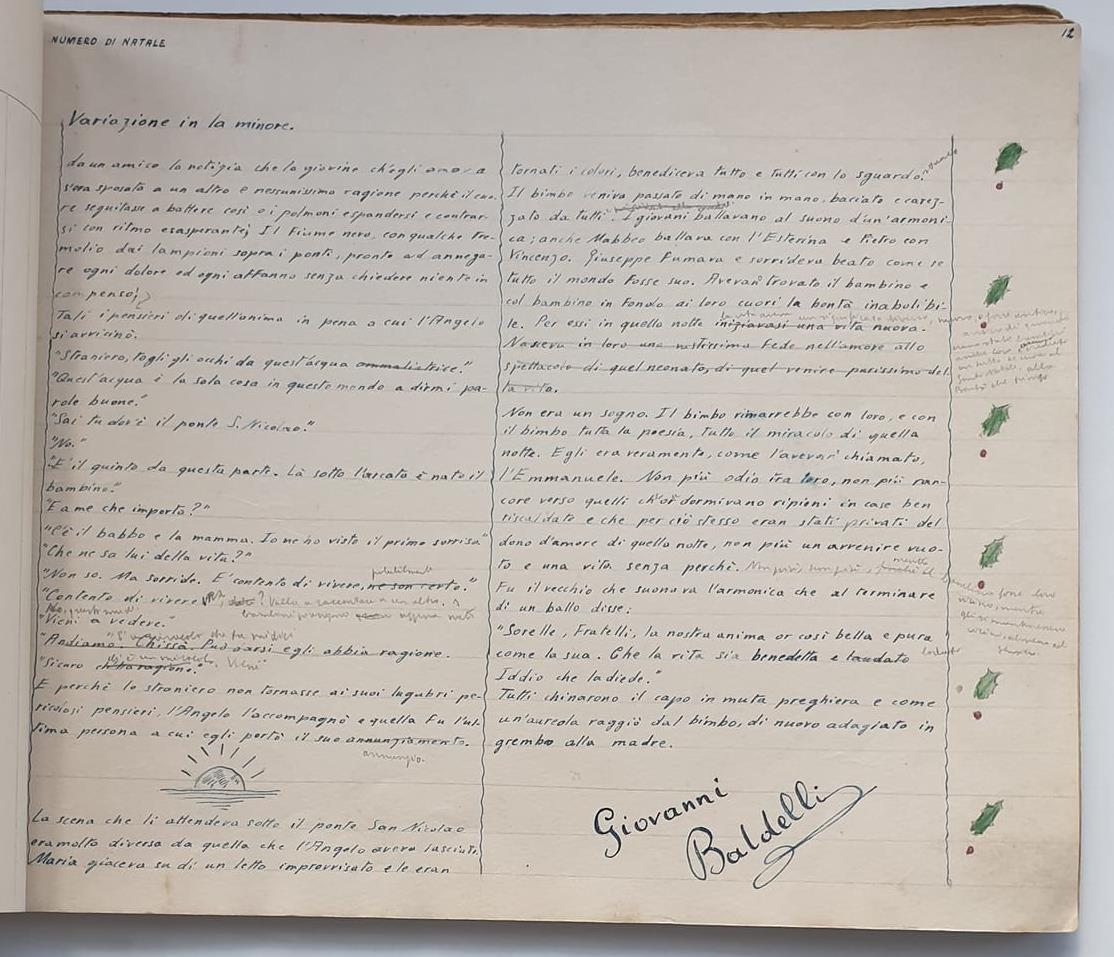 NUMERO DI NATALE
12
Variazione in la minore.
da un amico la notizia che la giovine ch'egli amava
s'era sposata a un altro e nessunissima ragione perchè il cuo-
re seguitasse a battere così o i polmoni espandersi e contrar-
si con ritmo esasperante; Il fiume nero, con qualche tre-
molio dai lampioni sopra i ponti, pronto ad annega-
re ogni dolore ed ogni affanno senza chiedere niente in
compenso;
Tali i pensieri di quell'anima in pena a cui l'Angelo
si avvicinò.
"Straniero, togli gli occhi da quest'acqua ammaliatrice."
"Quest'acqua è la sola cosa in questo mondo a dirmi pa-
role buone."
"Sai tu dov'è il ponte S. Nicolao."
"No."
"E' il quinto da questa parte. Là sotto l'arcata è nato il
bambino."
"E a me che importa?"
"C'è il babbo e la mamma. Io ne ho visto il primo sorriso."
"Che ne sa lui della vita?"
"Non so. Ma sorride. E' contento di vivere, ne son certo."
"Contento di vivere
"Vieni a vedere."
"Andiamo. Chissà. Può darsi egli abbia ragione.
"Sicuro ch'ha ragione." Vieni"
E perchè lo straniero non tornasse ai suoi lugubri pe-
ricolosi pensieri, l'Angelo l'accompagnò e quella fu l'ul-
tima persona a cui egli portò il suo annunziamento.
annunzio.
La scena che li attendeva sotto il ponte San Nicolao
era molto diversa da quella che l'Angelo aveva lasciata.
Maria giaceva su di un letto improvvisato e le eran
tornati i colori, benediceva tutto e tutti con lo sguardo.
Il bimbo veniva passato di mano in mano, baciato e carez-
zato da tutti. I giovani ballavano al suono d'un'armoni-
ca; anche Mabbeo ballava con l'Esterina e Pietro con
Vincenzo. Giuseppe fumava e sorrideva beato come se
tutto il mondo fosse suo. Avevan trovato il bambino e
col bambino in fondo ai loro cuori la bontà inabolibi-
le. Per essi in quella notte iniziavasi una vita nuova.
Nasceva in loro una vastissima fede nell'amore allo
spettacolo di quel neonato, di quel venire purissimo del-
la vita.
Non era un sogno. Il bimbo rimarrebbe con loro, e con
il bimbo tutta la poesia, tutto il miracolo di quella
notte. Egli era veramente, come l'avevan chiamato,
l'Emmanuele. Non più odio tra loro, non più ran-
core verso quelli ch'or dormivano ripieni in case ben
riscaldate e che per ciò stesso eran stati privati del
dono d'amore di quella notte, non più un avvenire vuo-
to e una vita senza perchè.
Fu il vecchio che suonava l'armonica che al terminare
di un ballo disse:
"Sorelle, Fratelli, la nostra anima or così bella e pura
come la sua. Che la vita sia benedetta e laudato
Iddio che la diede."
Tutti chinarono il capo in muta preghiera e come
un'aureola raggiò dal bimbo, di nuovo adagiato in
grembo alla madre.
Giovanni
Baldelli